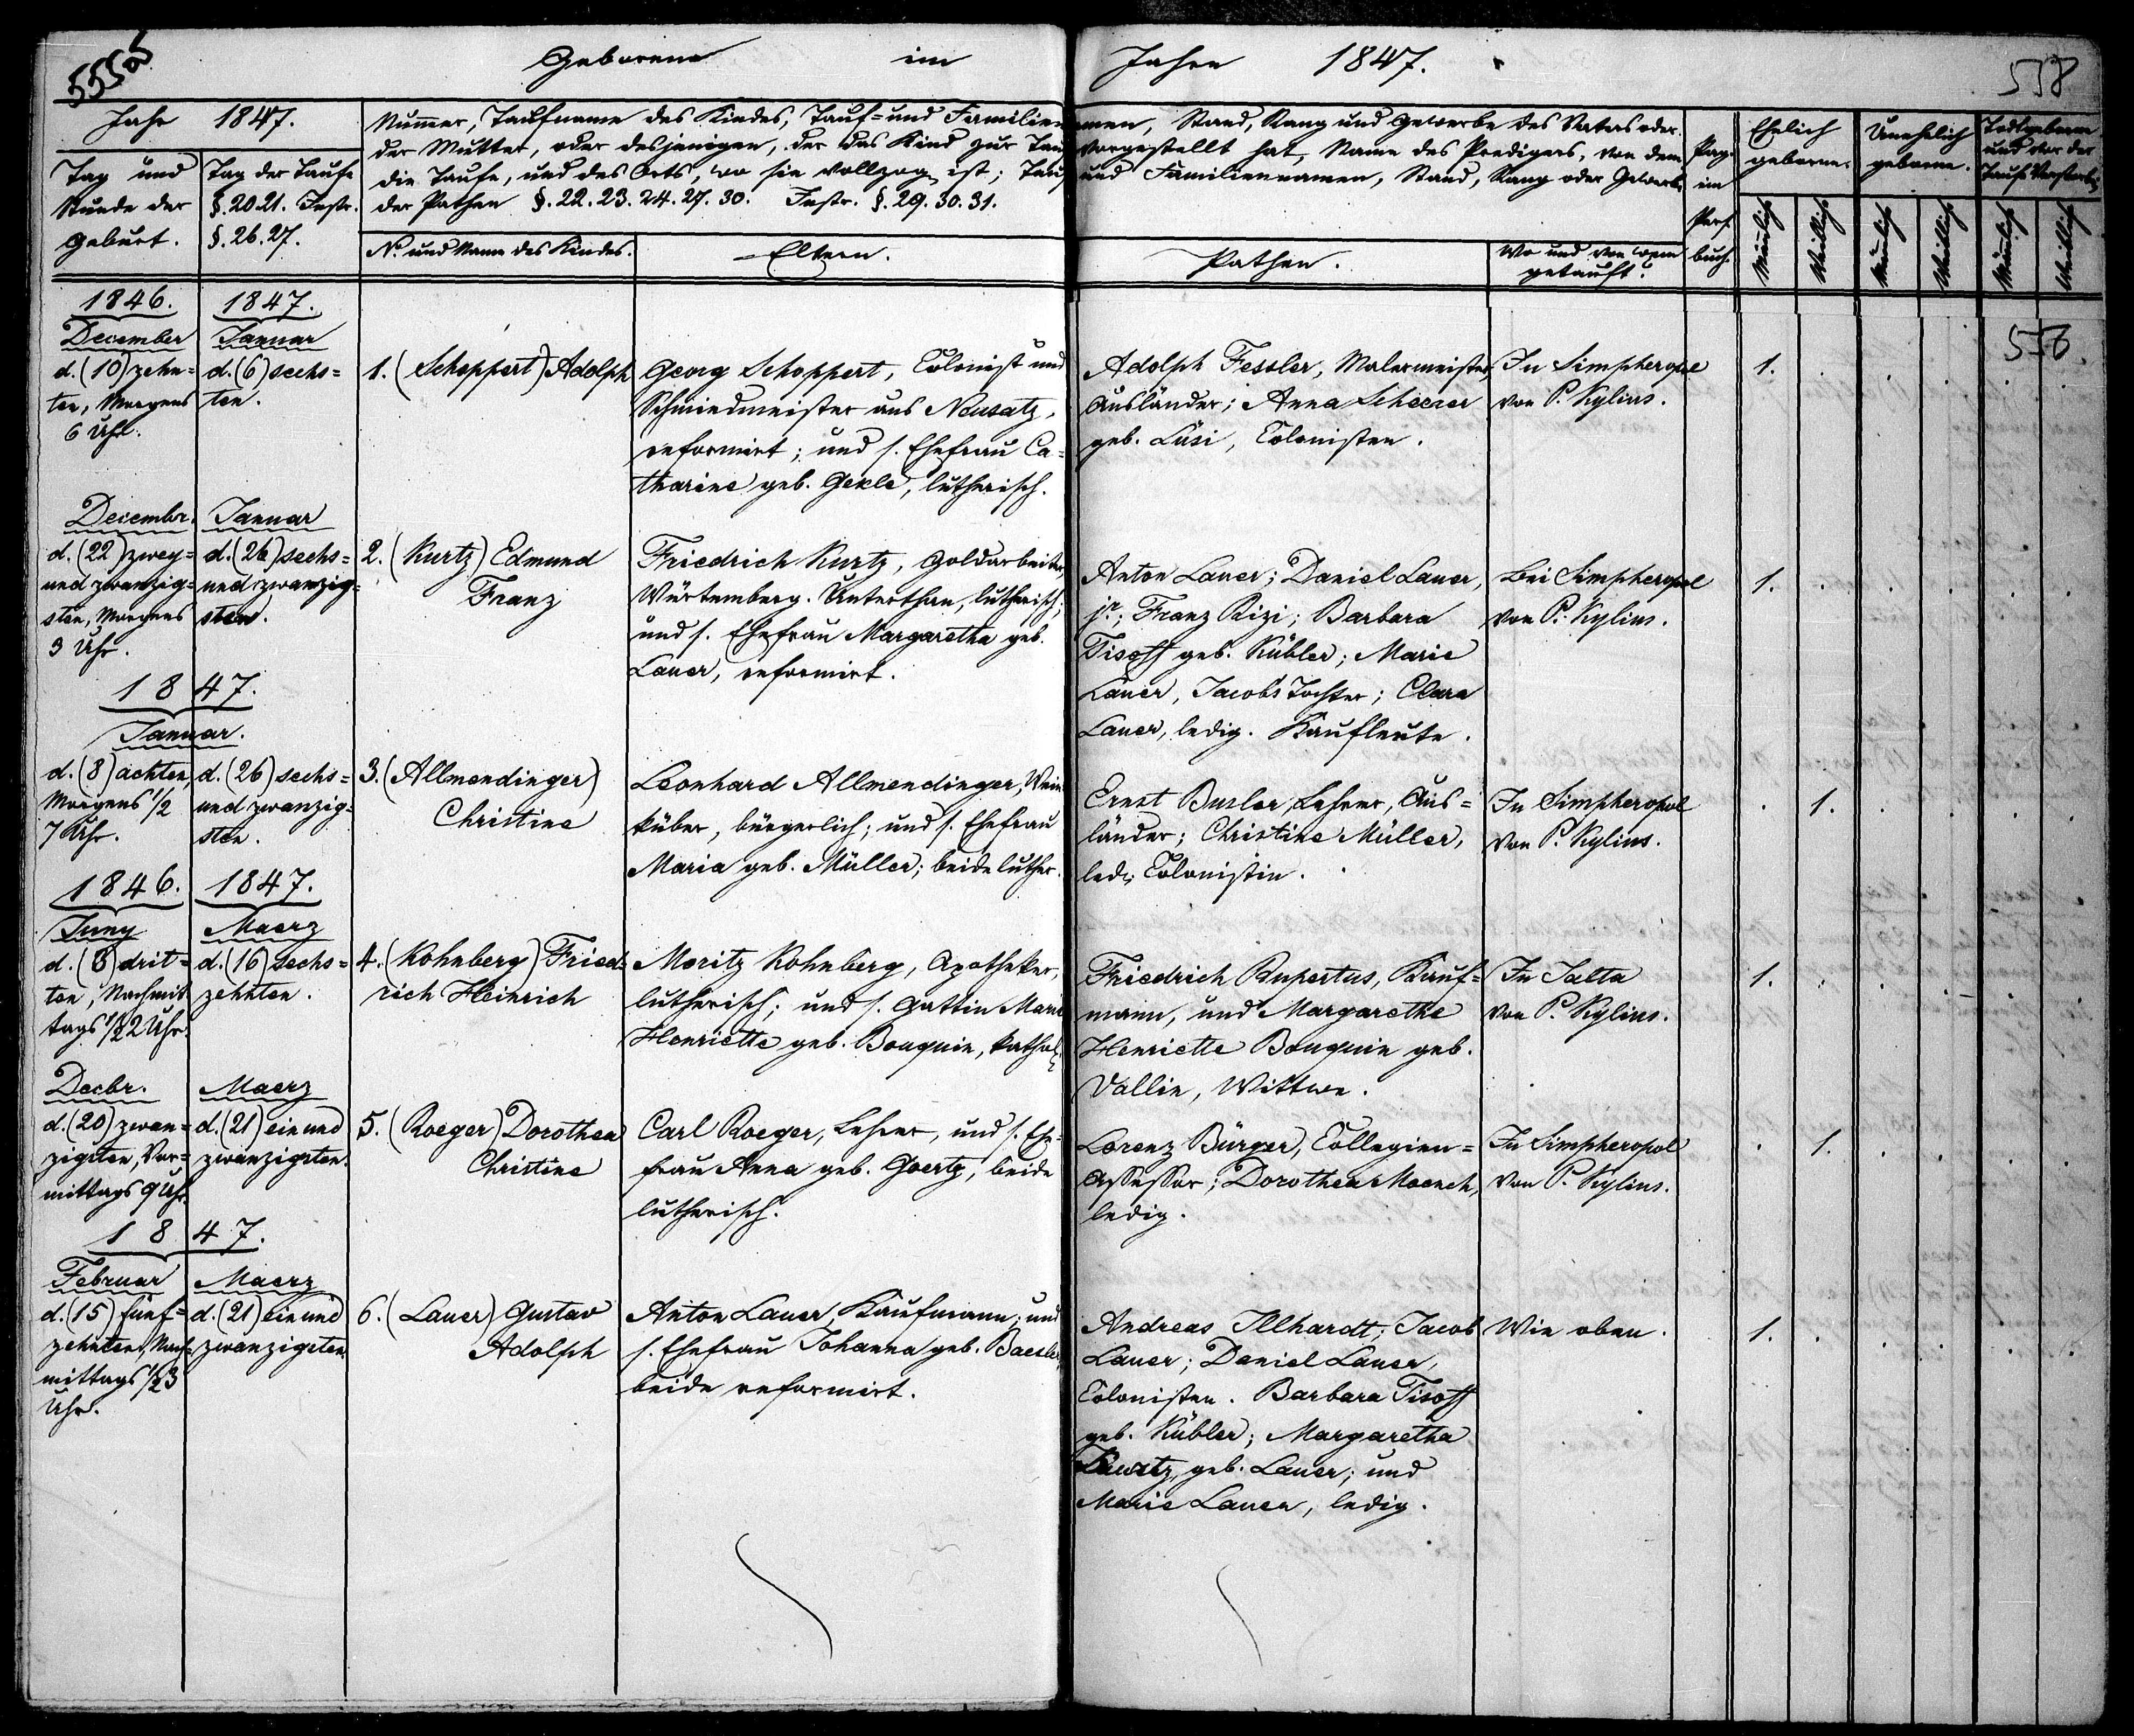 555
Geborene im Jahre 1847.
558
Jahr 1847.
Tag und Stunde der Geburt.
Tag der Taufe §. 20 21. Instr. §. 26. 27.
Nummer, Taufname des Kindes, Tauf= und Familien
der Mutter, oder desjenigen, der das Kind zur Tau
die Taufe, und des Orts, wo sie vollzog. ist; Tauf
der Pathen §. 22. 23. 24. 27. 30. Instr. §. 29. 30. 31.
amen, Stand, Rang und Gewerbe des Vaters oder
vorgestellt hat, Name des Predigers, von dem
und Familiennamen, Stand, Rang oder Gewerbe
No. und Name des Kindes.
Eltern.
Pathen.
Wo und von wem
getauft?
Pag.
im
Pers.
buch.
Ehelich
geborene.
Unehelich
geborene.
Todtgeborene
und vor der
Taufe Verstorb.
Männlich
Weiblich
Männlich
Weiblich
Männlich
Weiblich
556.
1846.
December
d. (10) zehn=
ten, Morgens
6 Uhr.
1847.
Januar
d. (6) sechs=
ten.
1. (Schoppert) Adolph
Georg Schoppert, Colonist und
Schmiedmeister aus Neusatz,
reformirt; und s. Ehefrau Ca=
tharine geb. Gekle, lutherisch.
Adolph Fessler, Malermeister,
Ausländer; Anna Scheerer
geb. Lüsi, Colonisten.
In Simpheropol
von P. Kylius.
1.
Decembr.
d. (22) zwey=
und zwanzig=
sten, Morgens
3 Uhr.
Januar
d. (26) sechs=
und zwanzig=
sten.
2. (Kurtz) Edmund
Franz
Friedrich Kurtz, Goldarbeiter,
Würtemberg. Unterthan, lutherisch;
und s. Ehefrau Margaretha geb.
Lauer, reformirt.
Anton Lauer; Daniel Lauer,
jr.; Franz Rizi; Barbara
Tisoff geb. Kübler; Marie
Lauer, Jacobs Tochter; Clara
Lauer, ledig. Kaufleute.
Bei Simpheropol
von P. Kylius.
1.
1847.
Januar.
d. (8) achten,
Morgens 1/2
7 Uhr.
d. (26) sechs=
und zwanzig=
sten.
3. (Allmendinger)
Christine
Leonhard Allmendinger, Wein
küber, bürgerlich; und s. Ehefrau
Maria geb. Müller; beide luther.
Ernst Busler, Lehrer, Aus=
länder; Christine Müller,
led. Colonistin.
In Simpheropol
von P. Kylius.
1.
1846.
Juny
d. (3) drit=
ten, Nachmit
tags 1/2 2 Uhr.
1847.
Maerz
d. (16) sechs=
zehnten.
4. (Kohnberg) Fried=
rich Heinrich
Moritz Kohnberg, Apotheker,
lutherisch; und s. Gattin Marie
Henriette geb. Bouquin, kathol.
Friedrich Rupertus, Kauf=
mann, und Margarethe
Henriette Bouquin geb.
Vallin, Wittwe.
In Jalta
von P. Kylius.
1.
Decbr.
d. (20) zwan=
zigsten, Vor=
mittags 9 Uhr.
Maerz
d. (21) ein und
zwanzigsten.
5. (Roeger) Dorothea
Christine
Carl Roeger, Lehrer, und s. Ehe=
frau Anna geb. Goertz, beide
lutherisch.
Lorenz Bürger, Collegien=
Assessor; Dorothea Moench,
ledig.
In Simpheropol
von P. Kylius.
1.
1847.
Februar
d. (15) fünf=
zehnten, Nach=
mittags 1/2 3
Uhr.
Maerz
d. (21) ein und
zwanzigsten.
6. (Lauer) Gustav
Adolph
Anton Lauer, Kaufmann; und
s. Ehefrau Johanna geb. Baesler,
beide reformirt.
Andreas Illhardt; Jacob
Lauer; Daniel Lauer,
Colonisten. Barbara Tisoff
geb. Kübler; Margaretha
Kurtz, geb. Lauer; und
Marie Lauer, ledig.
Wie oben.
1.